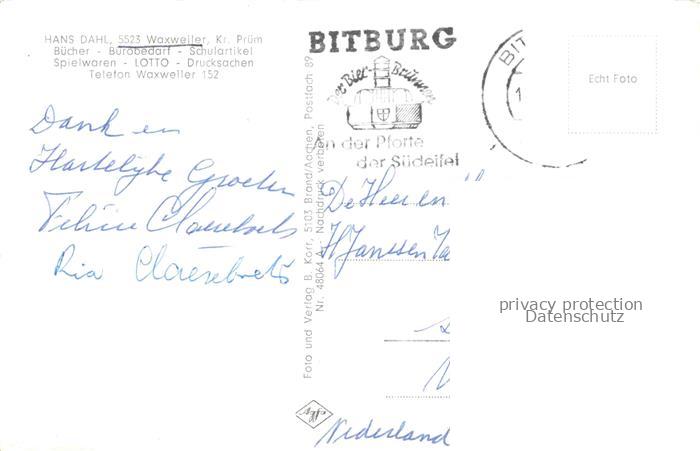 HANS DAHL, 5523 Waxweiler, Kr. Prüm
Bücher - Bürobedarf - Schulartikel
Spielwaren - LOTTO - Drucksachen
Telefon Waxweiler 152
Dank en
Hartelijke Groeten
Felicie Claesebaets
Ria Claesebaets
Foto und Verlag B. Korr, 5103 Brand/Aachen, Postfach 89
Nr. 48064 A - Nachdruck verboten
Agfa
BITBURG
Der Bier-Brunnen
an der Pforte
der Südeifel
BIT
1
Echt Foto
De Heer en
H Janssen
Nederland
privacy protection
Datenschutz